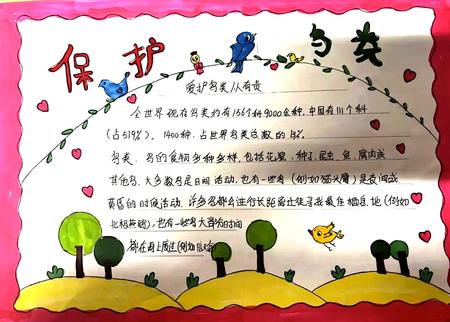 保护鸟类
爱护鸟类从有责
全世界现存鸟类约有156个科9000余种,中国有111个科
(占519%),1400种.占世界鸟类总数的15%.
鸟类、鸟的食物多种多样,包括花蜜、种子、昆虫、鱼、腐肉或
其他鸟.大多数鸟是日间活动,也有一些鸟(例如猫头鹰)是夜间或
黄昏的时候活动.许多鸟都会进行长距离迁徙寻找最佳栖息地(例如
北极燕鸥),也有一些鸟大部分时间
都在海上度过(例如信天翁)